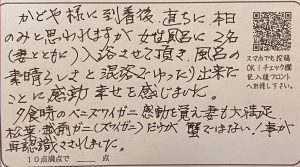 かどや様に到着後、直ちに本日
のみと思われますが女性風呂に2名
(妻とともに)入浴させて頂き、風呂の
素晴らしさと混浴でゆったり出来た
ことに感動 幸せを感じました。
夕食時のベーズワイガニ 感動を覚え妻も大満足
松葉、越前ガニ(ズワイガニ)だけが 蟹ではない!事が
再認識させれました。
10点満点で　　　点
スマホでも投稿
OK!チェック欄
記入後フロント
へ